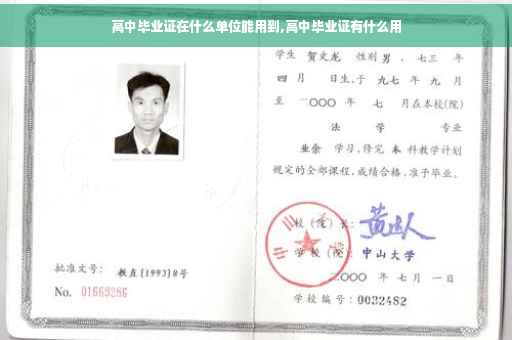 高中毕业证在什么单位能用到,高中毕业证有什么用
学生 贺文龙 性别 男 、七三 年
四 月 日生,于 九七 年 九 月
至 二〇〇〇 年 七 月在本校(院)
法 学 专业
业余 学习,修完 本 科教学计划
规定的全部课程,成绩合格,准予毕业。
校(院)长:
学校(院):中山大学
二〇〇〇 年 七 月 一 日
批准文号: 教直[1993]8号
No. 01669286
学校编号:0032482